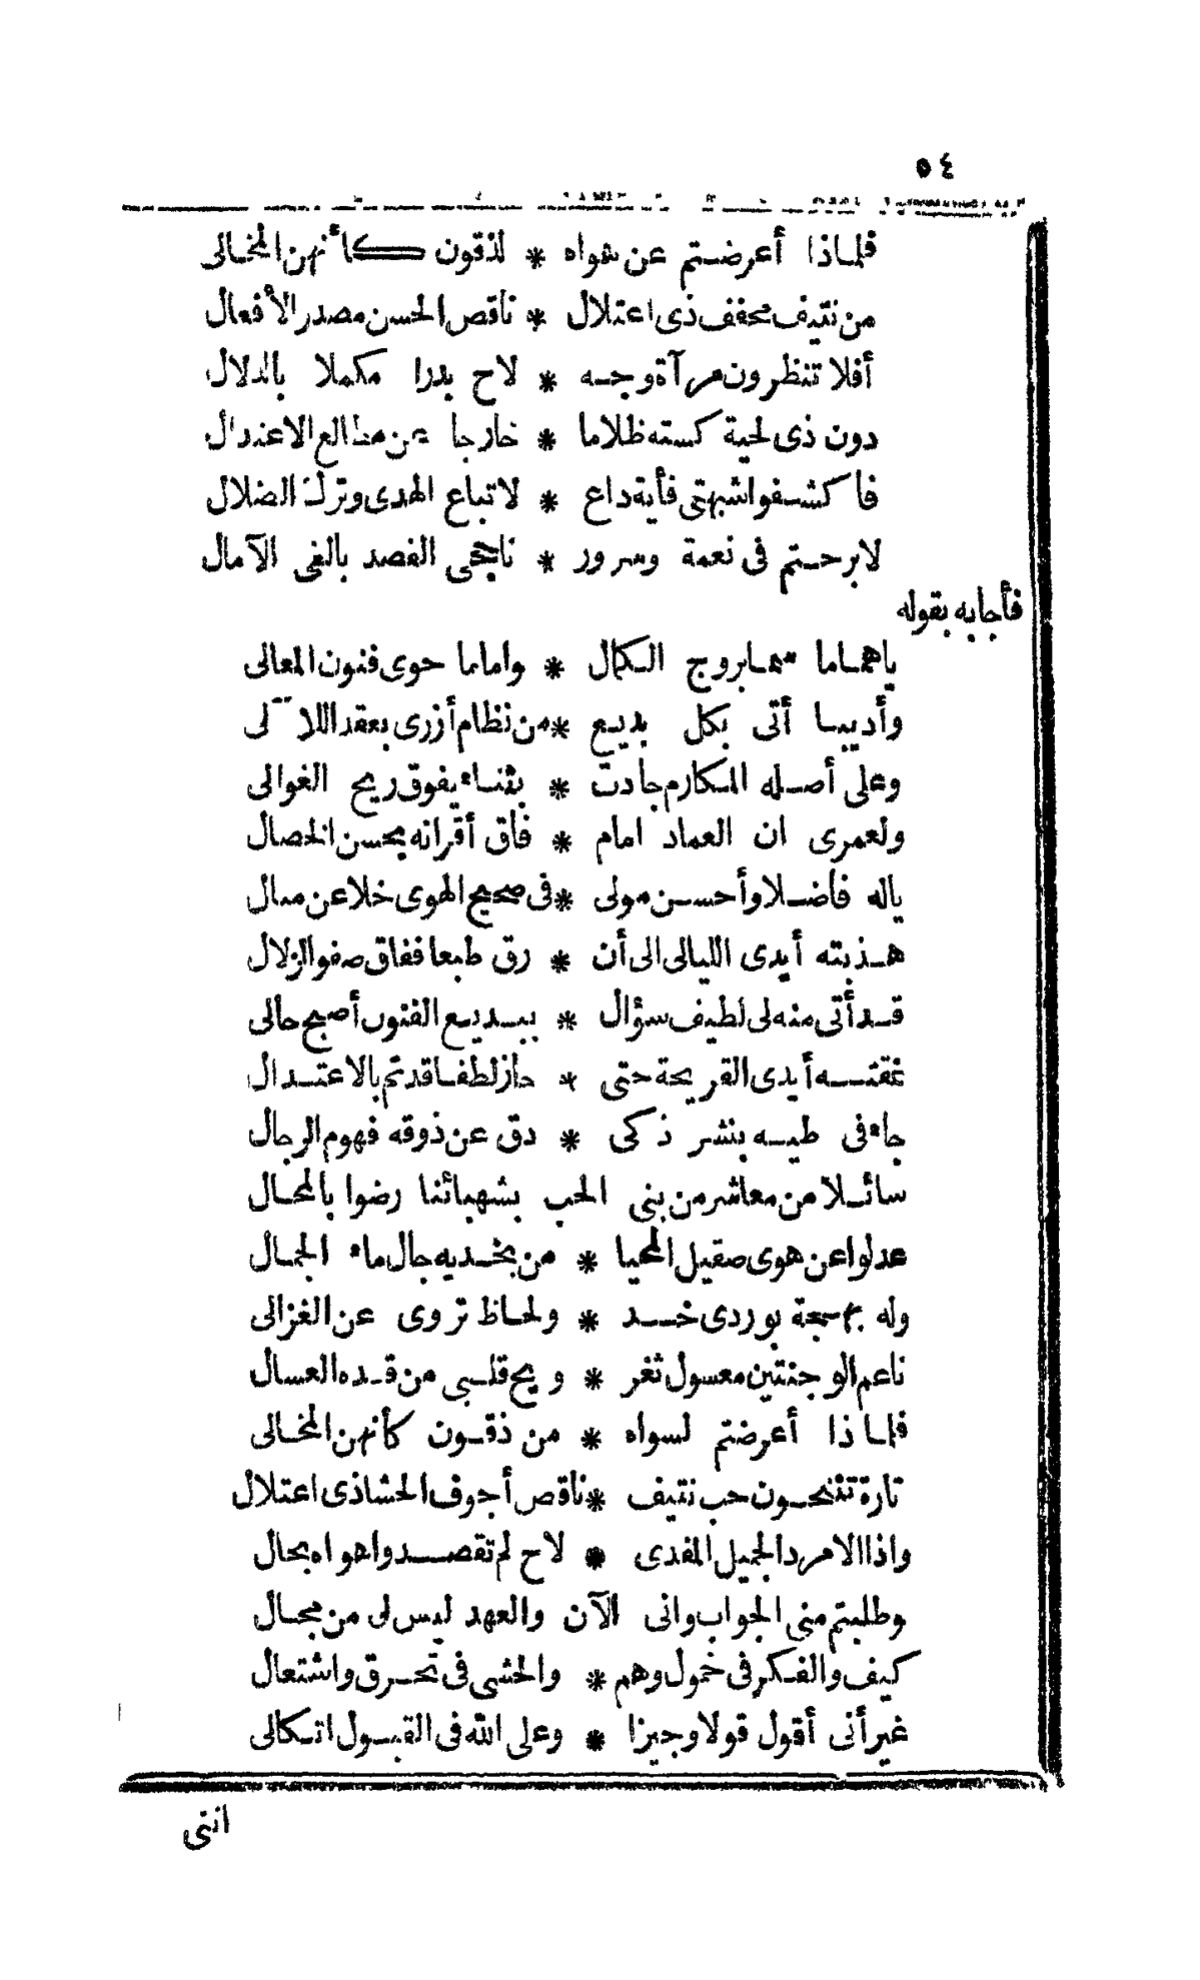 ٥٤
فلماذا أعرضتم عن هواه * لذقون كأنهن المخالى
من نتيف محفف ذى اعتلال * ناقص الحسن مصدر الأفعال
أفلا تنظرون مرآة وجه * لاح بدرا مكملا بالدلال
دون ذى لحية كسته ظلاما * خارجا عن مطالع الاعتدال
فاكشفوا شبهتى فأية داع * لاتباع الهدى وترك الضلال
لا برحتم فى نعمة وسرور * ناجحى القصد بالغى الآمال
فأجابه بقوله
ياهماما سما بروج الكمال * واماما حوى فنون المعالى
وأديبا أتى بكل بديع * من نظام أزرى بعقد اللآلى
وعلى أصله المكارم جادت * بثناء يفوق ريح الغوالى
ولعمرى ان العماد امام * فاق أقرانه بحسن الخصال
ياله فاضلا وأحسن مولى * فى صحيح الهوى خلا عن مبال
هذبته أيدى الليالى الى أن * رق طبعا ففاق صفو الزلال
قد أتى منه لى لطيف سؤال * ببديع الفنون أصبح حالى
نمقته أيدى القريحة حتى * حاز لطفا قد تم بالاعتدال
جاء فى طيه بنشر ذكى * دق عن ذوقه فهوم الرجال
سائلا من معاشر من بنى الحب بشهبائنا رضوا بالمحال
عدلوا عن هوى صقيل المحيا * من بخديه جال ماء الجمال
وله بهجة بوردى خد * ولحاظ تروى عن الغزالى
ناعم الوجنتين معسول ثغر * ويح قلبى من قده العسال
فلماذا أعرضتم لسواه * من ذقون كأنهن المخالى
تارة تنحون حب نتيف * ناقص أجوف الحشا ذى اعتلال
واذا الامرد الجميل المفدى * لاح لم تقصدوا هواه بحال
وطلبتم منى الجواب وانى الآن والعهد ليس لى من مجال
كيف والفكر فى خمول وهم * والحشى فى تحرق واشتعال
غير أنى أقول قولا وجيزا * وعلى الله فى القبول اتكالى
اننى